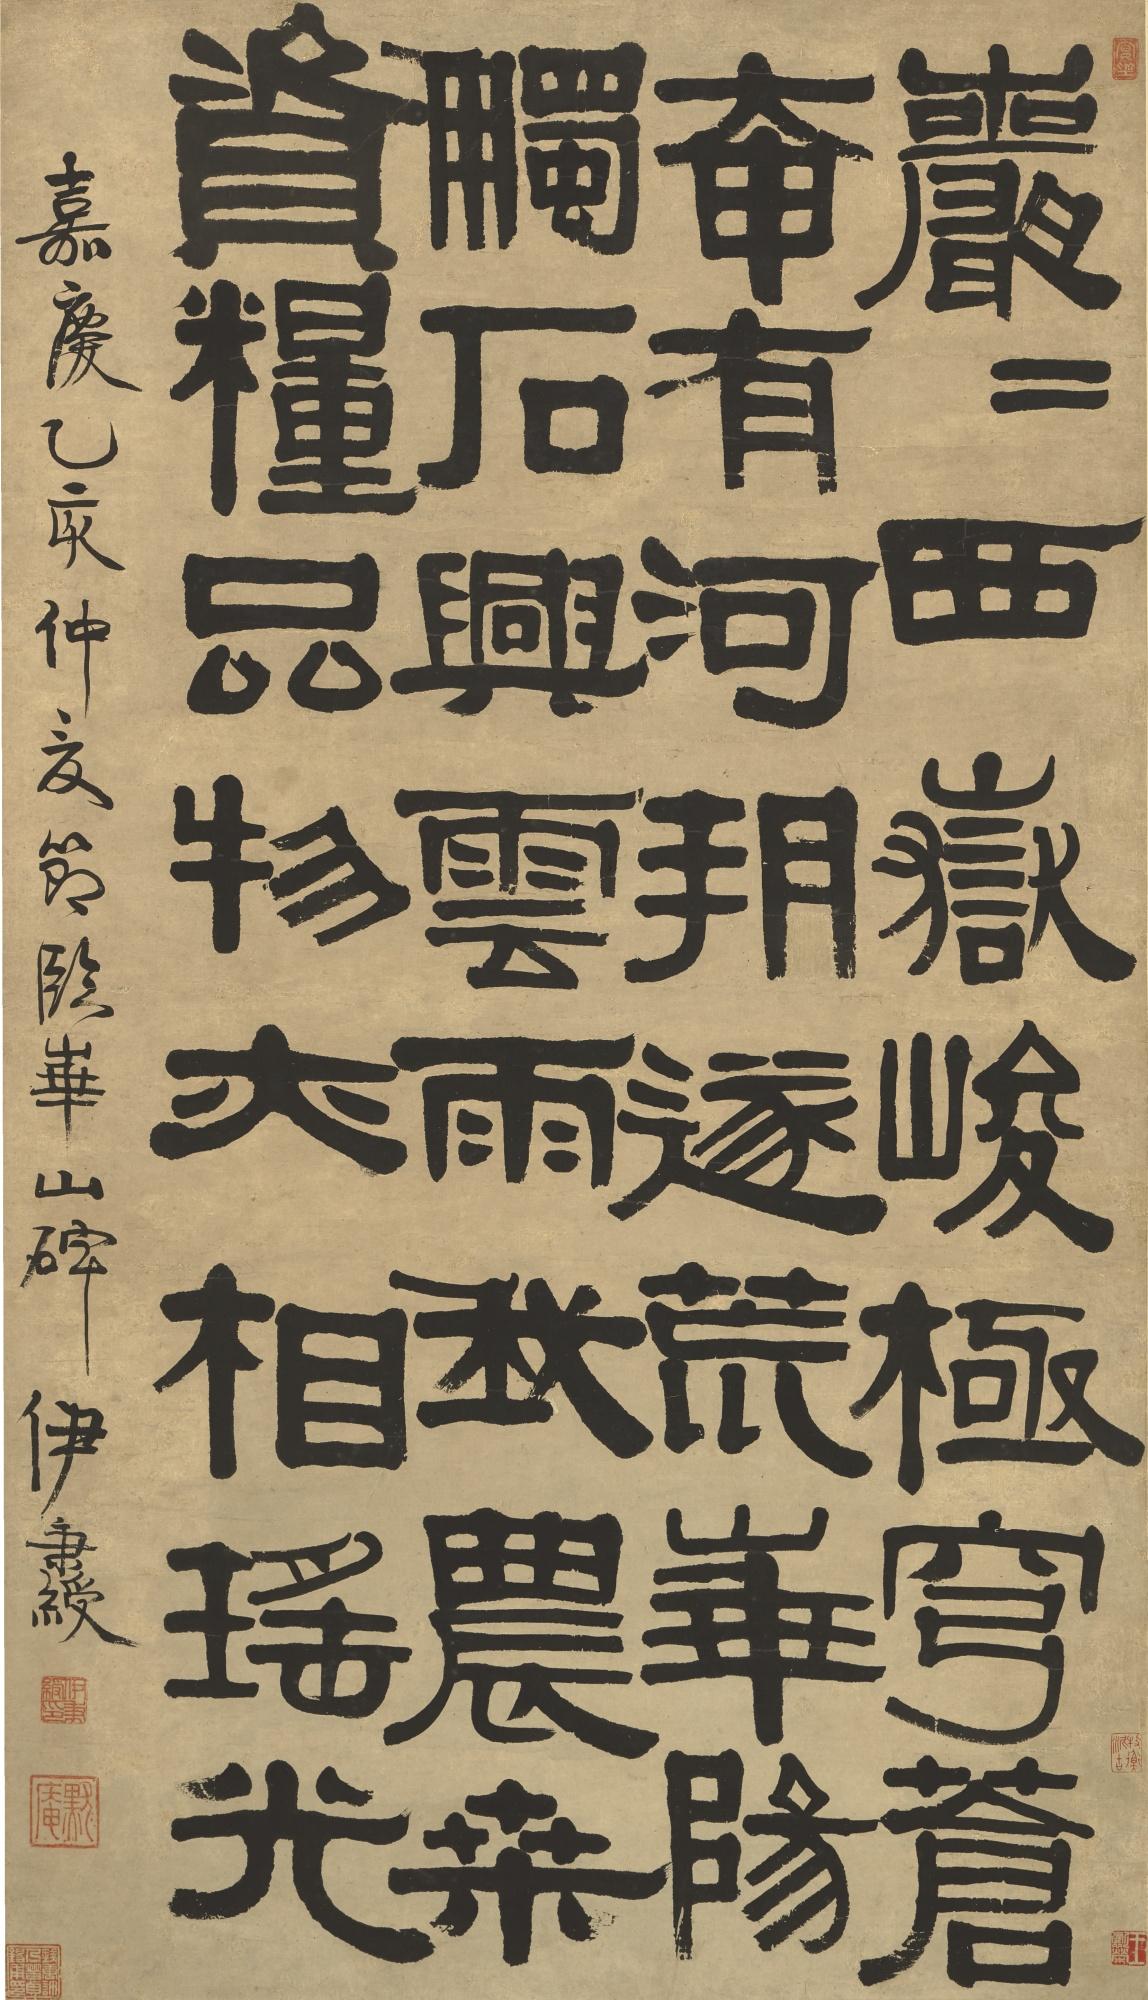 巖二西嶽峻極穹蒼
奄有河朔遂荒華陽
觸石興雲雨我農桑
資糧品物亦相瑤光
嘉慶乙亥仲夏節臨華山碑 伊秉綬
伊秉綬印
默庵